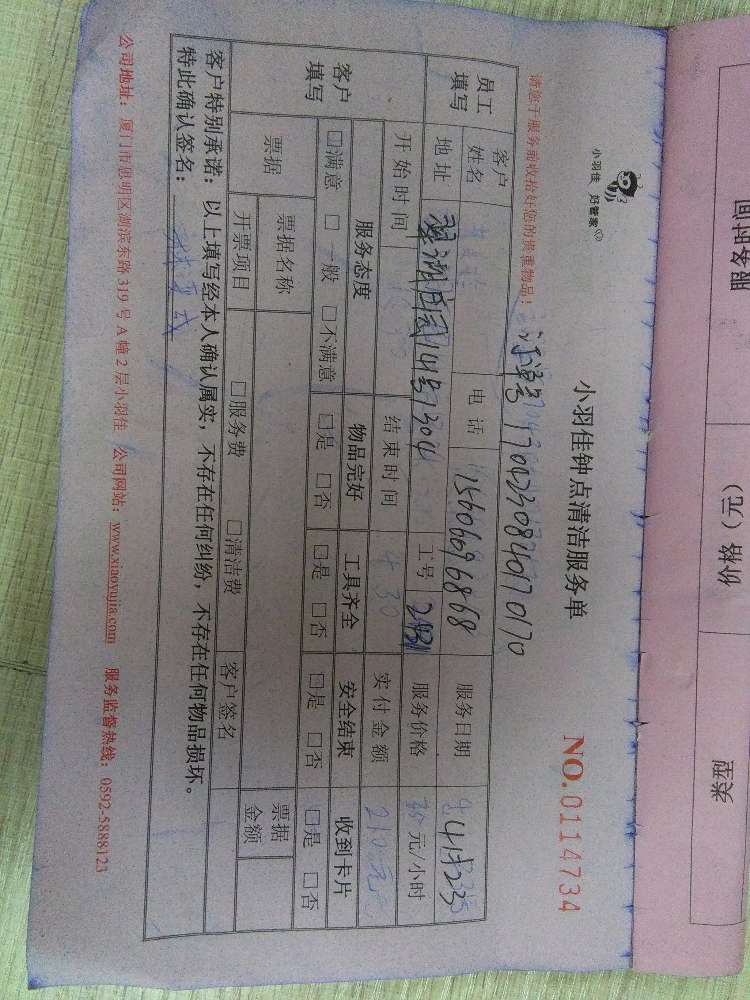 服务时间
价格（元）
类型
小羽佳 好管家
小羽佳钟点清洁服务单
NO.0114734
请您于服务前收拾好您的贵重物品！
1704230840170170
员工填写
客户姓名
电话 15606096868
服务日期
地址 翠湖庄园14号1304
工号 2931
服务价格 35元/小时
开始时间
结束时间 4 30
实付金额 210元
客户填写
服务态度 物品完好 工具齐全 安全结束 收到卡片
□满意 □一般 □不满意 □是 □否 □是 □否 □是 □否 □是 □否
票据
票据名称
票据金额
开票项目 □服务费 □清洁费 客户签名
客户特别承诺：以上填写经本人确认属实，不存在任何纠纷，不存在任何物品损坏。
特此确认签名：
公司地址：厦门市思明区湖滨东路 319 号 A 幢 2 层小羽佳 公司网站：www.xiaoyujia.com 服务监督热线：0592-5888123